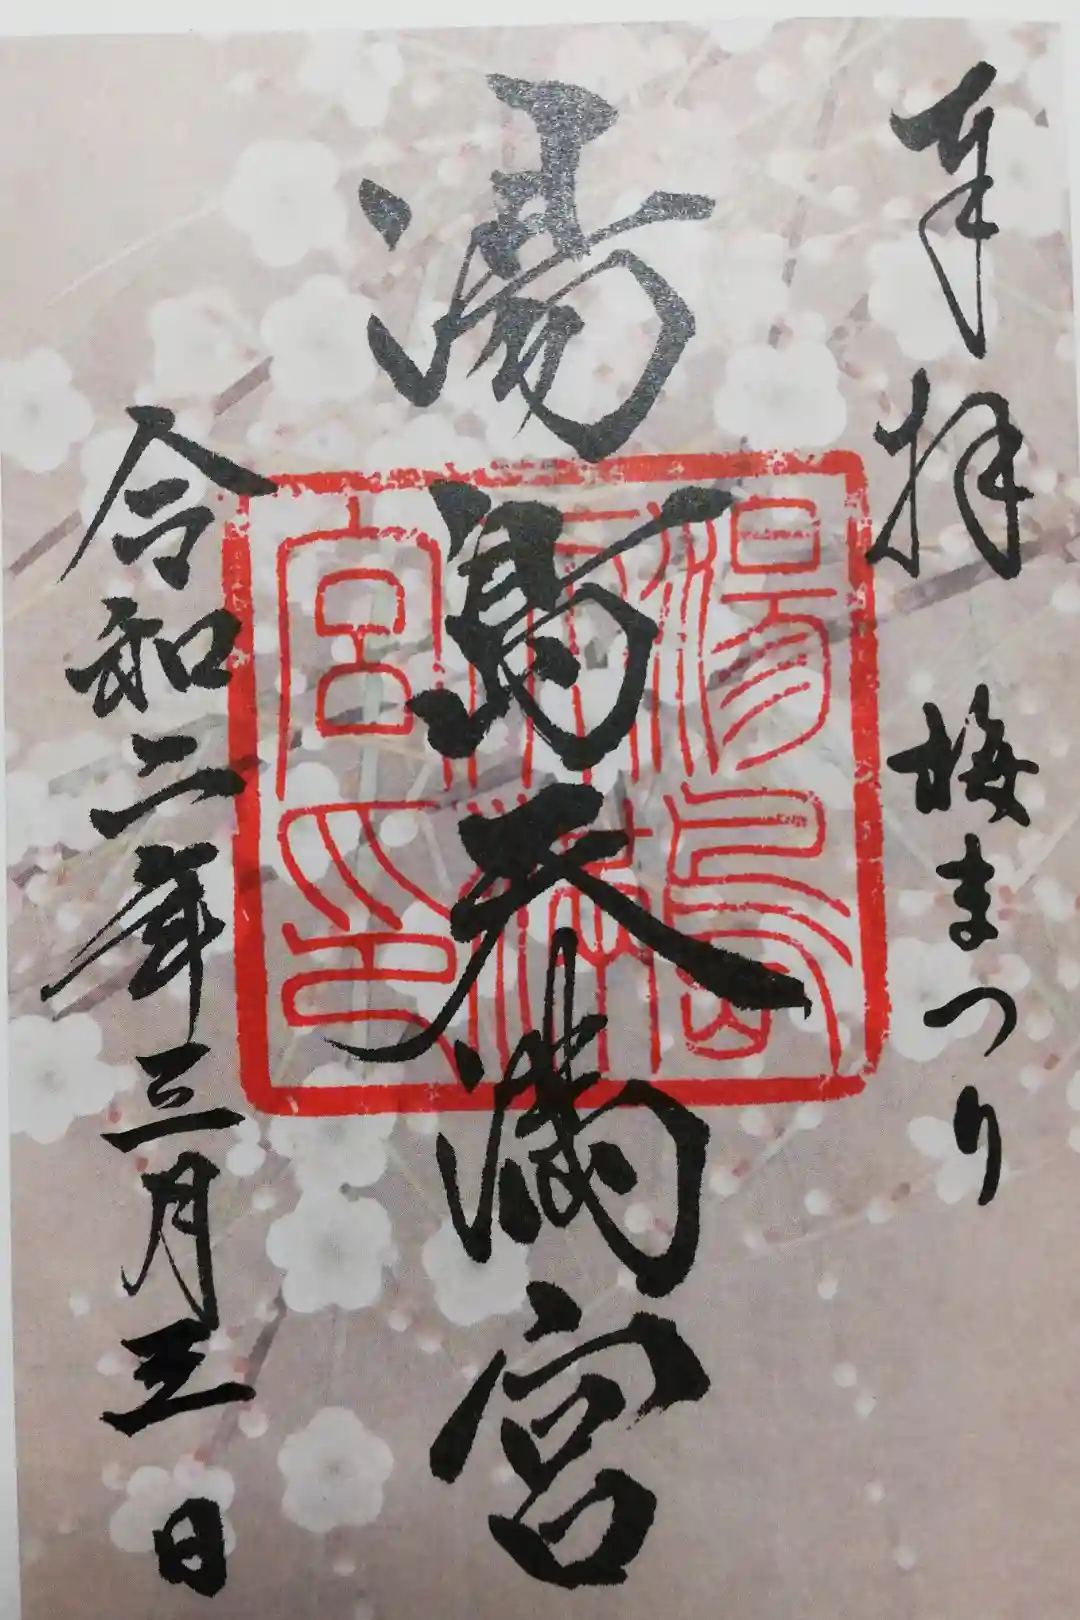 奉拝 梅まつり
湯島天満宮
湯島天満宮印
令和二年三月三日